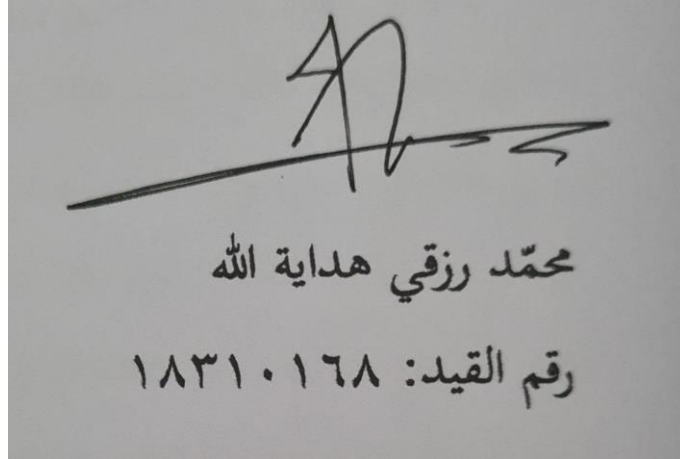 محمّد رزقي هداية الله
رقم القيد: ١٨٣١٠١٦٨